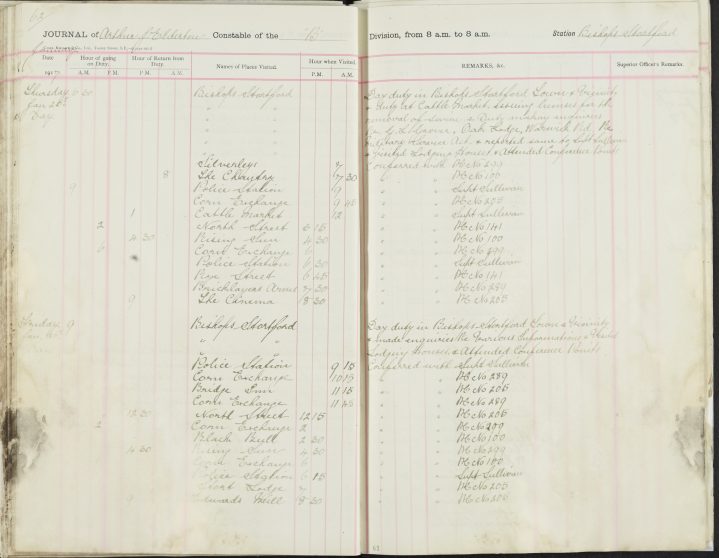 62
JOURNAL of Arthur Constable of the "B" Division, from 8 a.m. to 8 a.m. Station Bishops Stortford
Date Hour of going on Duty. Hour of Return from Duty. Names of Places Visited. Hour when Visited. REMARKS, &c. Superior Officer's Remarks.
A.M. P.M. A.M. P.M. P.M. A.M.
Thursday 6 30 Bishops Stortford Day duty in Bishops Stortford Town & Vicinity
Jan 28th " & duty at Cattle Market issuing licenses for the
Day " removal of swine & Duty making enquiries
" Oak Lodge, Warwick Rd, Re
" Military Service Act, & reported same to Supt Sullivan
" Lodging Houses & Attended Conference Points
Silverleys 7 Conferred with PC No 299
The Chantry 8 7 30 " " PC No 100
9 Police Station 9 " " Supt Sullivan
Corn Exchange 9 45 " " PC No 205
1 Cattle Market 12 " " Supt Sullivan
2 North Street 2 15 " " PC No 141
4 30 Rising Sun 4 30 " " PC No 100
6 Corn Exchange 6 " " PC No 299
Police Station 6 30 " " Supt Sullivan
Rye Street 6 45 " " PC No 141
Bricklayers Arms 7 30 " " PC No 289
9 The Cinema 8 30 " " PC No 205
9 Bishops Stortford Day duty in Bishops Stortford Town & Vicinity
" " & made enquiries Re Various Informations &
" Lodging Houses & Attended Conference Points
Police Station 9 15 Conferred with Supt Sullivan
Corn Exchange 10 15 " " PC No 289
Bridge Inn 11 15 " " PC No 205
Corn Exchange 11 45 " " PC No 289
12 30 North Street 12 15 " " PC No 205
2 Corn Exchange 2 " " PC No 299
Black Bull 2 30 " " PC No 100
4 30 Rising Sun 4 30 " " PC No 299
Corn Exchange 6 " " PC No 100
Police Station 6 15 " " Supt Sullivan
Lodge 7 " " PC No 205
9 Edwards Mill 8 30 " " PC No 205